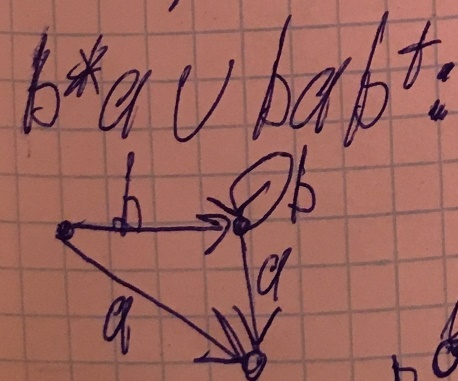 b*a ∪ bab⁺:
b
b
a
a